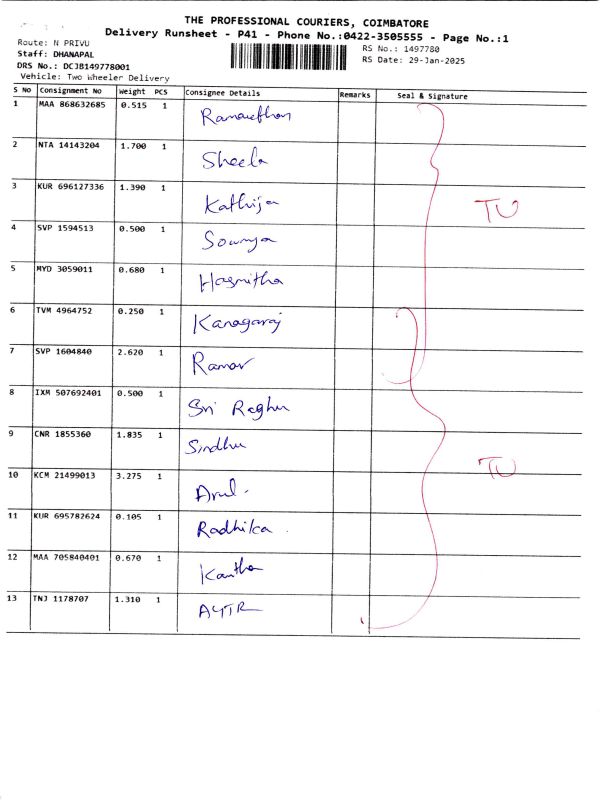 THE PROFESSIONAL COURIERS, COIMBATORE
Delivery Runsheet - P41 - Phone No.:0422-3505555 - Page No.:1
Route: N PRIVU
RS No.: 1497780
Staff: DHANAPAL
RS Date: 29-Jan-2025
DRS No.: DCJB149778001
Vehicle: Two Wheeler Delivery
S No Consignment No Weight PCS Consignee Details Remarks Seal & Signature
1 MAA 868632685 0.515 1
2 NTA 14143204 1.700 1 Sheela
3 KUR 696127336 1.390 1 Kathija TU
4 SVP 1594513 0.500 1 Sowmya
5 MYD 3059011 0.680 1 Hasmitha
6 TVM 4964752 0.250 1 Kanagaraj
7 SVP 1604840 2.620 1 Ramar
8 IXM 507692401 0.500 1 Sri Raghu
9 CNR 1855360 1.835 1 Sindhu
10 KCM 21499013 3.275 1 Arul. TU
11 KUR 695782624 0.105 1 Radhika
12 MAA 705840401 0.670 1 Kantha
13 TNJ 1178707 1.310 1